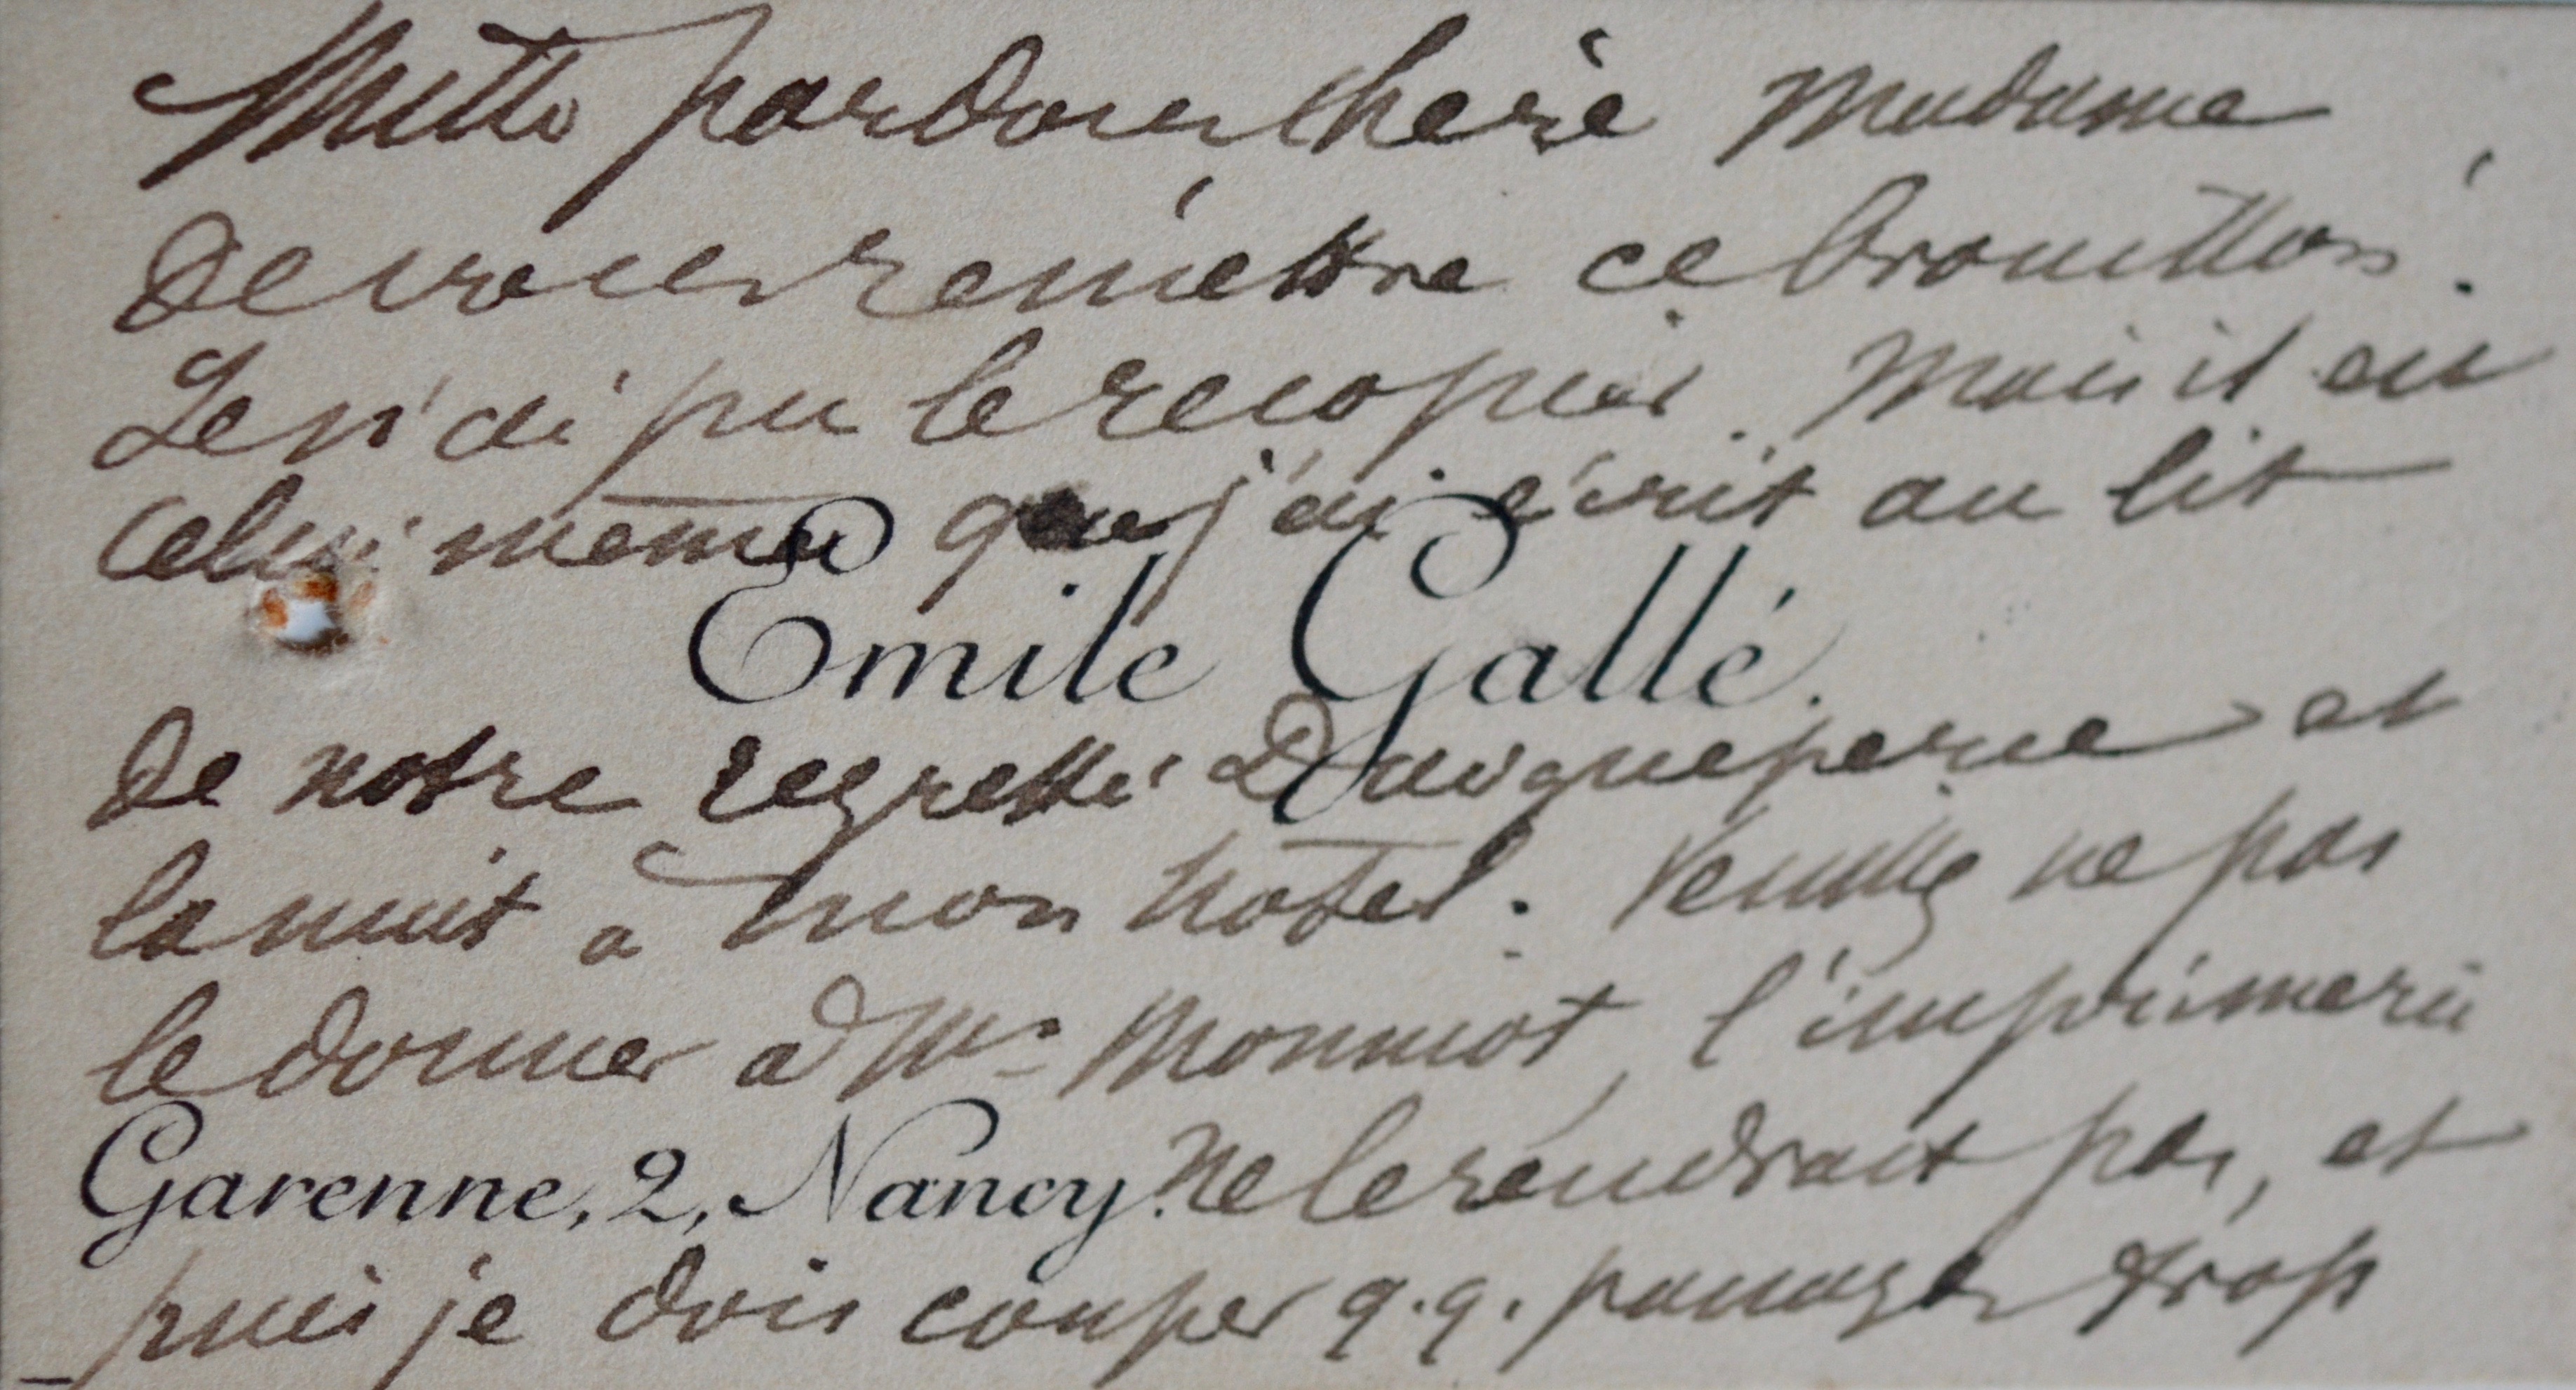 Mille pardons chère Madame
de vous remettre ce brouillon.
Je n'ai pu le recopier. Mais il est
celui même que j'ai écrit au lit
Emile Gallé.
de notre regretté Daigueperse et
la nuit à mon hôtel. Veuillez ne pas
le donner à Mr Monniot, l'imprimerie
Garenne, 2, Nancy. ne le rendrait pas, et
puis je dois couper q.q. passages trop